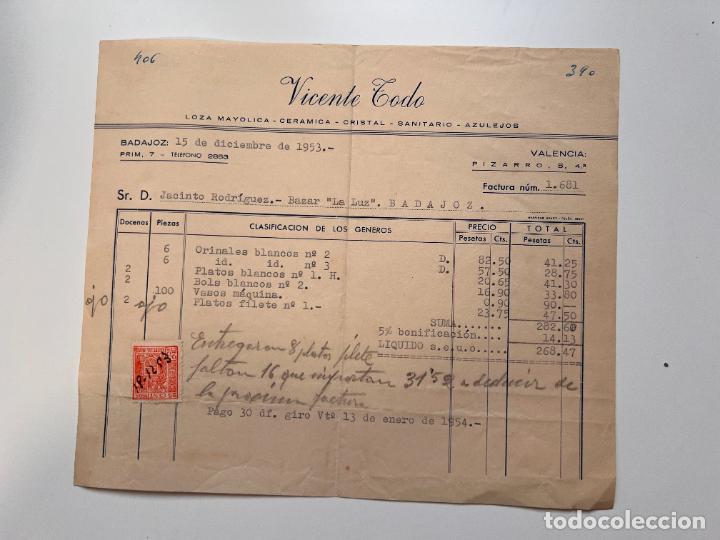 406
390
Vicente Todo
LOZA MAYOLICA - CERAMICA - CRISTAL - SANITARIO - AZULEJOS
BADAJOZ: 15 de diciembre de 1953.-
PRIM, 7 - TELÉFONO 2853
VALENCIA:
PIZARRO, 8, 4ª
Factura núm. 1.681
Sr. D. Jacinto Rodríguez.- Bazar "La Luz". BADAJOZ.
Docenas Piezas CLASIFICACION DE LOS GENEROS PRECIO TOTAL
Pesetas Cts. Pesetas Cts.
6 Orinales blancos nº 2 D. 82.50 41.25
6 id. id. nº 3 D. 57.50 28.75
2 Platos blancos nº 1. H. 20.65 41.30
2 Bols blancos nº 2. 16.90 33.80
100 Vasos máquina. 0.90 90.-
ojo 2 ojo Platos filete nº 1.- 23.75 47.50
SUMA....... 282.60
5% bonificación..... 14.13
LIQUIDO s.e.u.o..... 268.47
18-12-53
Entregaron 8 platos filete
faltan 16 que importan 31'52 a deducir de
la próxima factura
Pago 30 df. giro Vtº 13 de enero de 1954.-
todocoleccion
todocoleccion.net